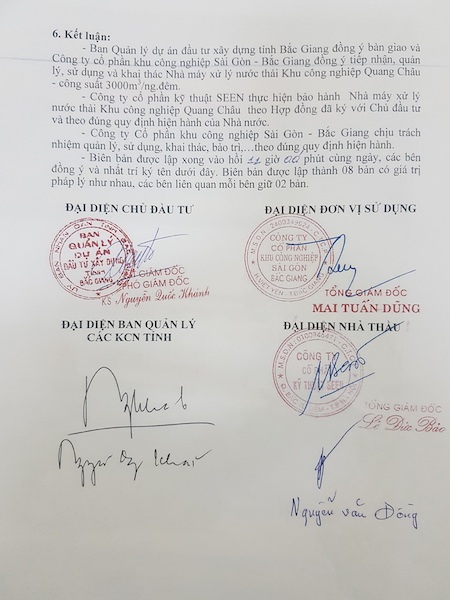 6. Kết luận:
- Ban Quản lý dự án đầu tư xây dựng tỉnh Bắc Giang đồng ý bàn giao và
Công ty cổ phần khu công nghiệp Sài Gòn - Bắc Giang đồng ý tiếp nhận, quản
lý, sử dụng và khai thác Nhà máy xử lý nước thải Khu công nghiệp Quang Châu
- công suất 3000m³/ng.đêm.
- Công ty cổ phần kỹ thuật SEEN thực hiện bảo hành Nhà máy xử lý
nước thải Khu công nghiệp Quang Châu theo Hợp đồng đã ký với Chủ đầu tư
và theo đúng quy định hiện hành của Nhà nước.
- Công ty Cổ phần khu công nghiệp Sài Gòn - Bắc Giang chịu trách
nhiệm quản lý, sử dụng, khai thác, bảo trì,…theo đúng quy định hiện hành.
- Biên bản được lập xong vào hồi 11 giờ 00 phút cùng ngày, các bên
đồng ý và nhất trí ký tên dưới đây. Biên bản được lập thành 08 bản có giá trị
pháp lý như nhau, các bên liên quan mỗi bên giữ 02 bản.
ĐẠI DIỆN CHỦ ĐẦU TƯ
BAN
QUẢN LÝ
DỰ ÁN
ĐẦU TƯ XÂY DỰNG
TỈNH
BẮC GIANG
GIÁM ĐỐC
PHÓ GIÁM ĐỐC
KS Nguyễn Quốc Khánh
ĐẠI DIỆN ĐƠN VỊ SỬ DỤNG
CÔNG TY
CỔ PHẦN
KHU CÔNG NGHIỆP
SÀI GÒN
BẮC GIANG
TỔNG GIÁM ĐỐC
MAI TUẤN DŨNG
ĐẠI DIỆN BAN QUẢN LÝ
CÁC KCN TỈNH
ĐẠI DIỆN NHÀ THẦU
CÔNG TY
CỔ PHẦN
KỸ THUẬT SEEN
TỔNG GIÁM ĐỐC
Lê Đức Bảo
Nguyễn văn Đông